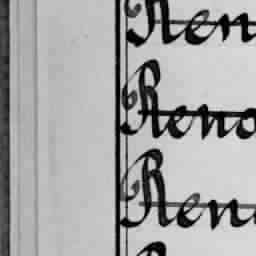 Ren
Reno
Ren